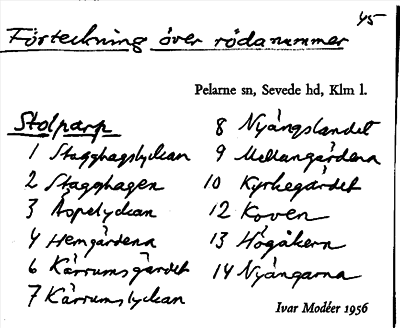 45
Förteckning över röda nummer
Pelarne sn, Sevede hd, Klm l.
Stolparp
1 Stagghagslyckan
2 Stagghagen
3 Aspelyckan
4 Hemgärdena
6 Kärrumsgärdet
7 Kärrumslyckan
8 Nyängslandet
9 Mellangärdena
10 Kyrkegärdet
12 Koven
13 Högåkern
14 Nyängarna
Ivar Modéer 1956